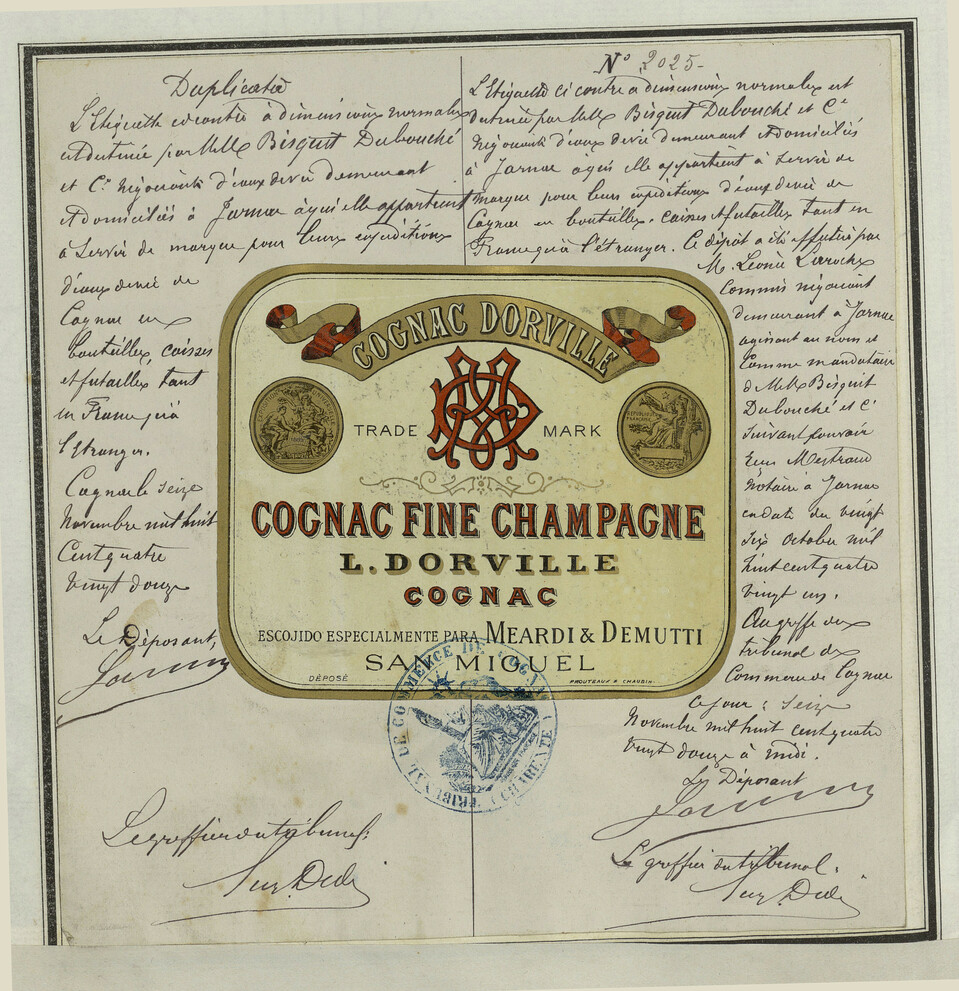 Duplicata
L'Etiquette ci contre à dimensions normales
est destinée par Mess Bisquit Dubouché
et Cie négociants d'eaux de vie demeurant
et domiciliés à Jarnac à qui elle appartient
à servir de marque pour leurs expéditions
d'eaux de vie de
Cognac en
bouteilles, caisses
et futailles tant
en France qu'à
l'étranger.
Cognac le seize
Novembre mil huit
Cent quatre
vingt douze
Le Déposant,
Le greffier du tribunal:
No 2025-
L'Etiquette ci contre à dimensions normales est
destinée par Mess Bisquit Dubouché et Cie
négociants d'eaux de vie demeurant et domiciliés
à Jarnac à qui elle appartient à servir de
marque pour leurs expéditions d'eaux de vie de
Cognac en bouteilles, caisses et futailles tant en
France qu'à l'étranger. Ce dépôt a été effectué par
M. Léonce Laroche
Commis négociant
demeurant à Jarnac
agissant au nom et
comme mandataire
de Mess Bisquit
Dubouché et Cie
suivant pouvoir
notaire à Jarnac
en date du vingt
six Octobre mil
huit cent quatre
vingt un.
Au greffe du
tribunal de
Commerce de Cognac
ce jour: seize
Novembre mil huit cent quatre
vingt douze à midi.
Le Déposant
Le greffier du tribunal.
COGNAC DORVILLE
TRADE MARK
COGNAC FINE CHAMPAGNE
L. DORVILLE
COGNAC
ESCOJIDO ESPECIALMENTE PARA MEARDI & DEMUTTI
SAN MIGUEL
DÉPOSÉ
PROUTEAUX & CHAUBIN.
TRIBUNAL DE COMMERCE DE COGNAC (CHARENTE)